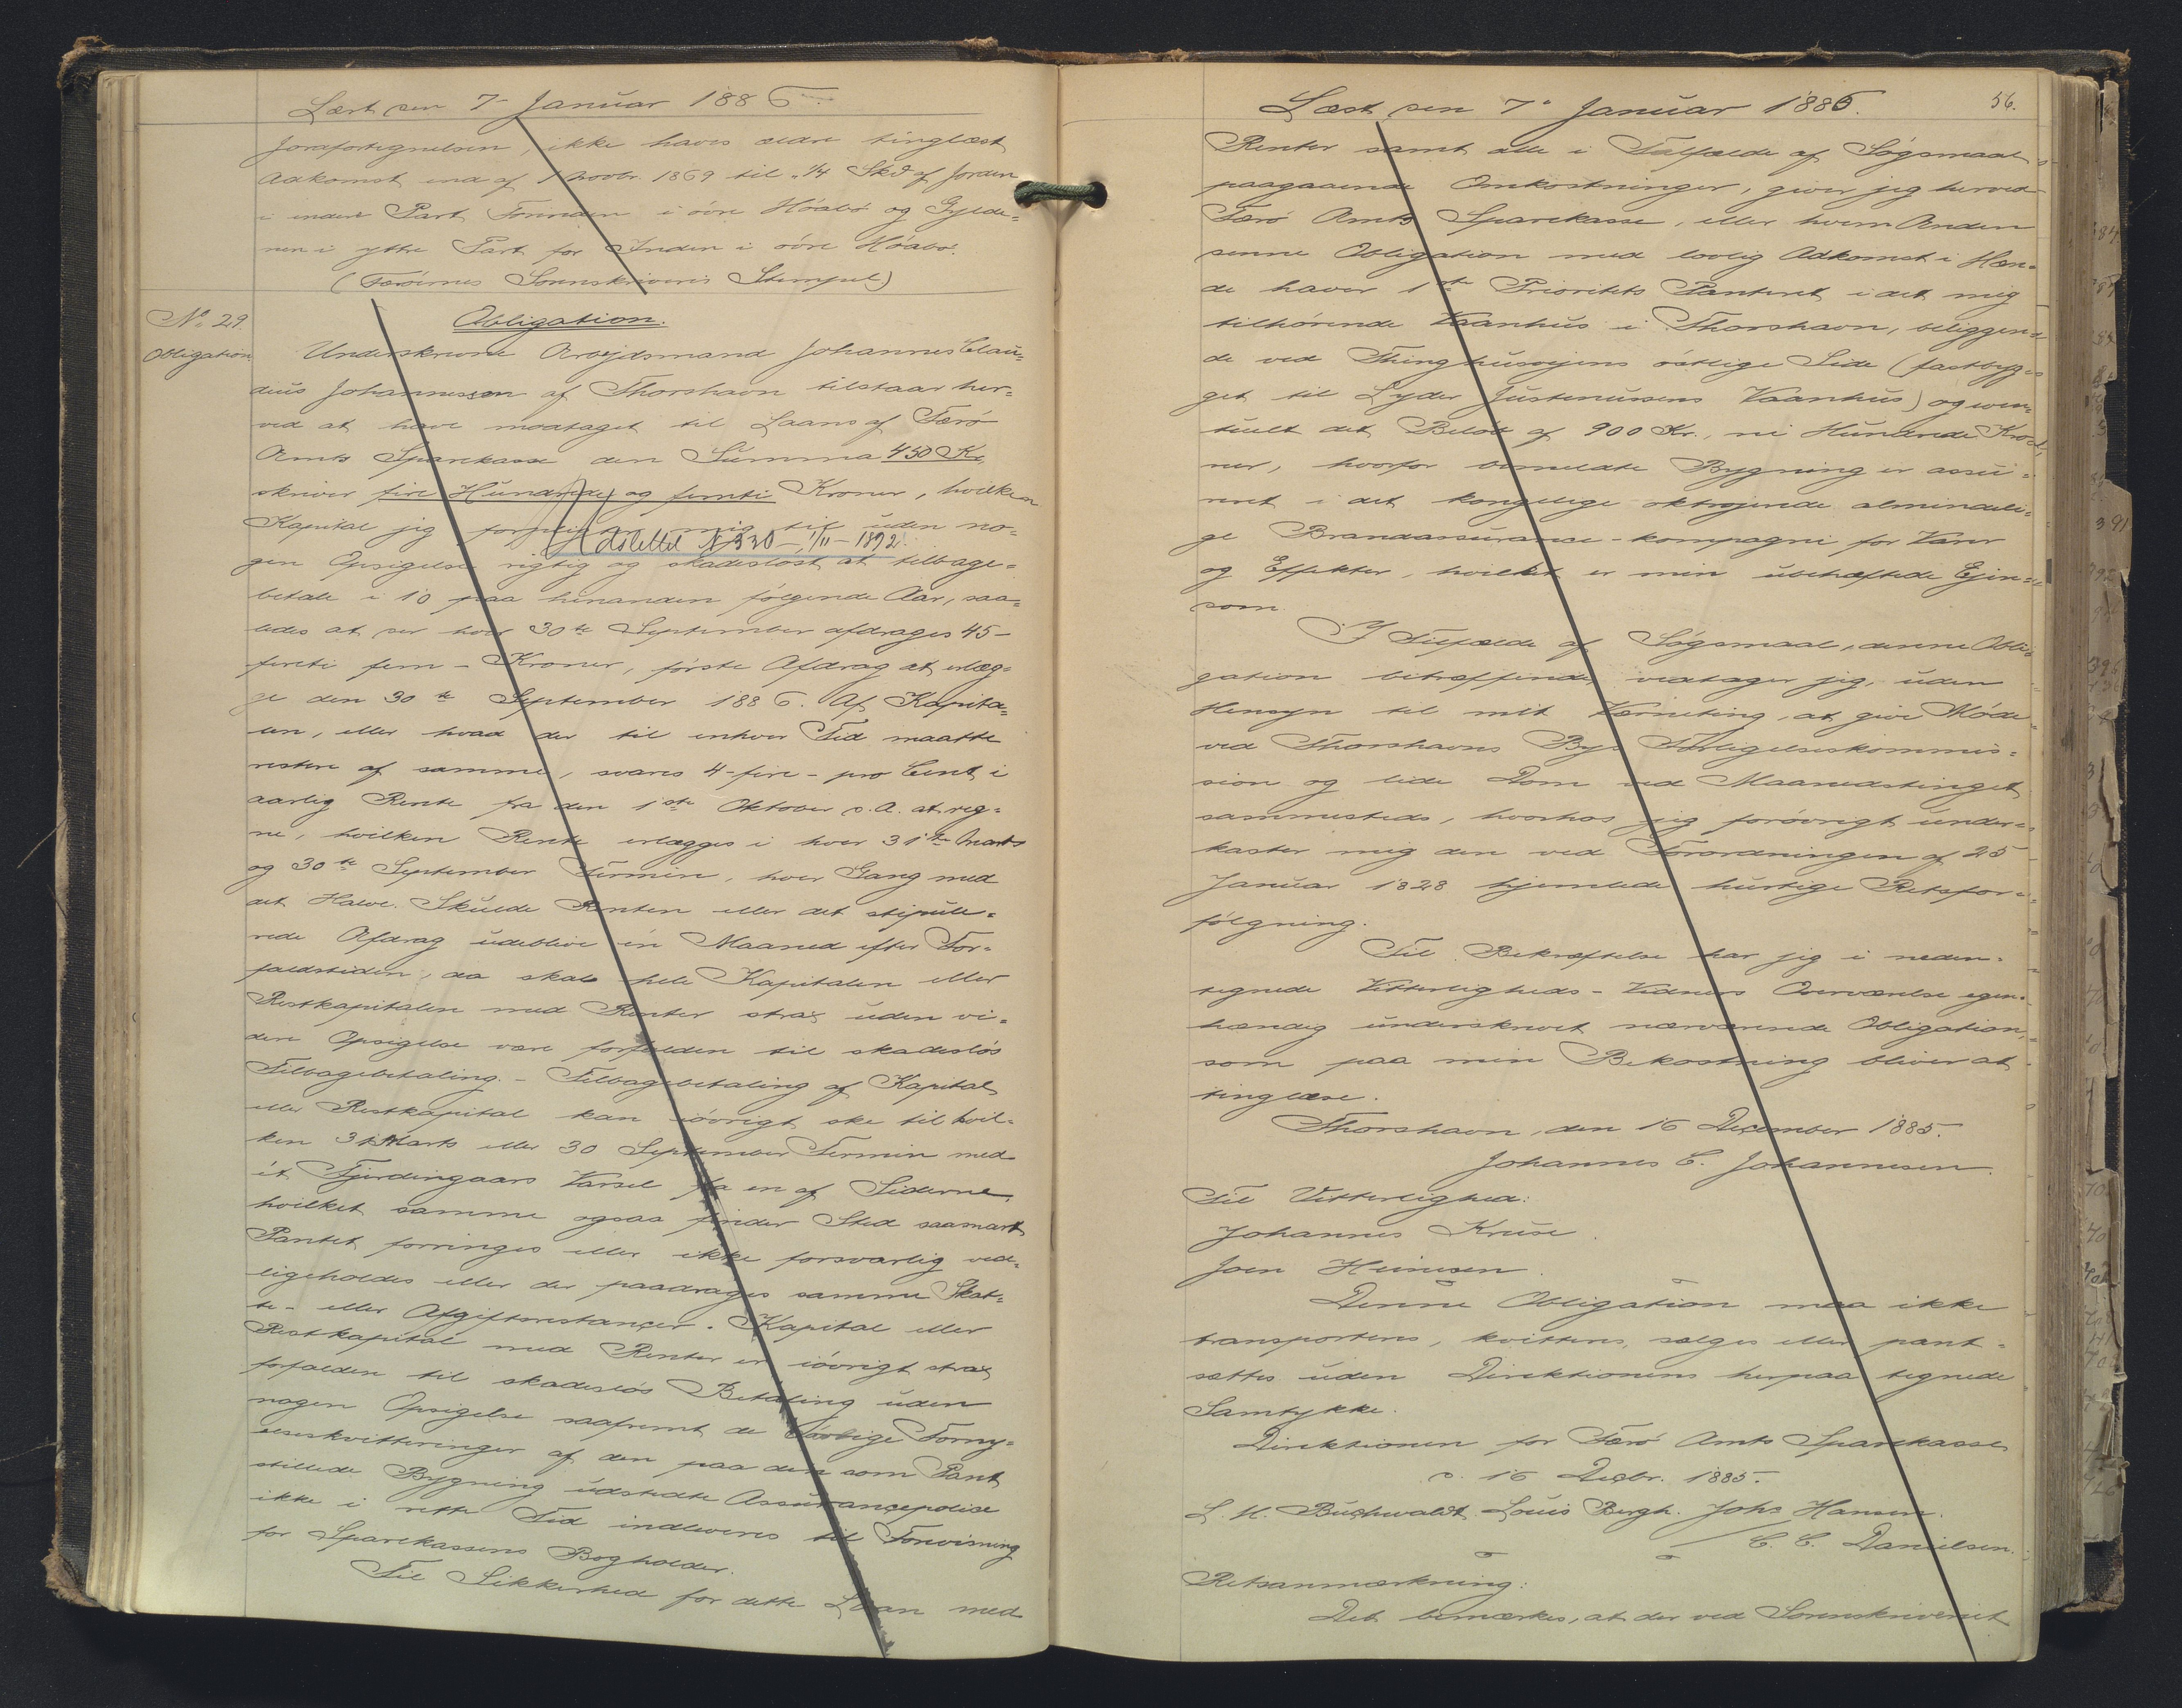 Læst den 7- Januar 1886.
Jordfortegnelsen, ikke haves ældre tinglæst
Adkomst end af 1 Novbr. 1869 til 1/4 Skd af Jorden
i inderne Part Forinden i övre Höabö og Gylde=
nen i yttre Part for Inden i övre Höabö.
(Færöernes Sorenskriveris Stempel)
No. 29.
Obligation
Obligation.
Underskrevne Arbejdsmand Johannes Clau=
deus Johannesen af Thorshavn tilstaar her=
ved at have modtaget til Laans af Færö
Amts Sparekasse den Summa 450 Kr,
skriver fire Hundrede og femti Kroner, hvilken
Kapital jeg forpligter mig til uden no=
Udslettet No 330 - 1/11 - 1892.
gen Opsigelse rigtig og skadeslöst at tilbage=
betale i 10 paa hinanden fölgende Aar, saa=
ledes at der hver 30te September afdrages 45-
fireti fem - Kroner, förste Afdrag at erlæg=
ge den 30te September 1886. Af Kapita=
len, eller hvad der til enhver Tid maatte
restere af samme, svares 4-fire- pro Cent i
aarlig Rente fra den 1ste Oktober d. A. at reg=
ne, hvilken Rente erlægges i hver 31te Marts
og 30te September Termin, hver Gang med
det Halve. Skulde Renten eller det stipule=
rede Afdrag udeblive én Maaned efter For=
faldstiden, da skal hele Kapitalen eller
Restkapitalen med Renter strax uden vi=
dere Opsigelse være forfalden til skadeslös
Tilbagebetaling. - Tilbagebetaling af Kapital
eller Restkapital kan iövrigt ske til hvil=
ken 31 Marts eller 30 September Termin med
ét Fjerdingaars Varsel fra en af Siderne,
hvilket samme ogsaa finder Sted saasnart
Pantet forringes eller ikke forsvarlig ved=
ligeholdes eller der paadrages samme Skat=
te- eller Afgiftsrestancer. Kapital eller
Restkapital med Renter er iövrigt strax
forfalden til skadeslös Betaling uden
nogen Opsigelse saafremt de lovlige Forny=
elseskvitteringer af den paa den som Pant
stillede Bygning udstedte Assurancepolice
ikke i rette Tid indleveres til Forevisning
for Sparekassens Bogholder.
Til Sikkerhed for dette Laan med
Læst den 7de Januar 1886.
56.
Renter samt alle i Tilfælde af Sögsmaal
paagaaende Omkostninger, giver jeg herved
Færö Amts Sparekasse, eller hvem Anden
denne Obligation med lovlig Adkomst i Hæn=
de haver 1ste Prioritets Panteret i det mig
tilhörende Vaanhus i Thorshavn, beliggen=
de ved Thinghusvejens östlige Side (fastbyg=
get til Lyder Justenussens Vaanhus) og even=
tuelt det Belöb af 900 Kr., ni Hundrede Kro=
ner, hvorfor bemeldte Bygning er assu=
reret i det kongelige oktrojerede almindeli=
ge Brandassurance-kompagni for Varer
og Effekter, hvilket er min übehæftede Ejen=
dom.
I Tilfælde af Sögsmaal, denne Obli=
gation betræffende, vedtager jeg, uden
Hensyn til mit Værneting, at give Möde
ved Thorshavns Bys Forligelseskommis=
sion og lide Dom ved Maanedstinget
sammesteds, hvorhos jeg forövrigt under=
kaster mig den ved Forordningen af 25
Januar 1828 hjemlede hurtige Retsfor=
fölgning.
Til Bekræftelse har jeg i neden=
tegnede Vitterligheds-Vidners Overværelse egen=
hændig underskrevet nærværende Obligation,
som paa min Bekostning bliver at
tinglæse.
Thorshavn, den 16 December 1885.
Johannes C. Johannesen.
Til Vitterlighed:
Johannes Kruse.
Joen Heinesen.
Denne Obligation maa ikke
transporteres, kvitteres, sælges eller pant=
sættes uden Direktionens herpaa tegnede
Samtykke.
Direktionen for Færö Amts Sparekasse
d. 16 Decbr. 1885.
L. M. Buchwaldt. Louis Bergh. Johs Hansen.
/ C. C. Danielsen.
Retsanmærkning:
Det bemærkes, at der ved Sorenskriveriet